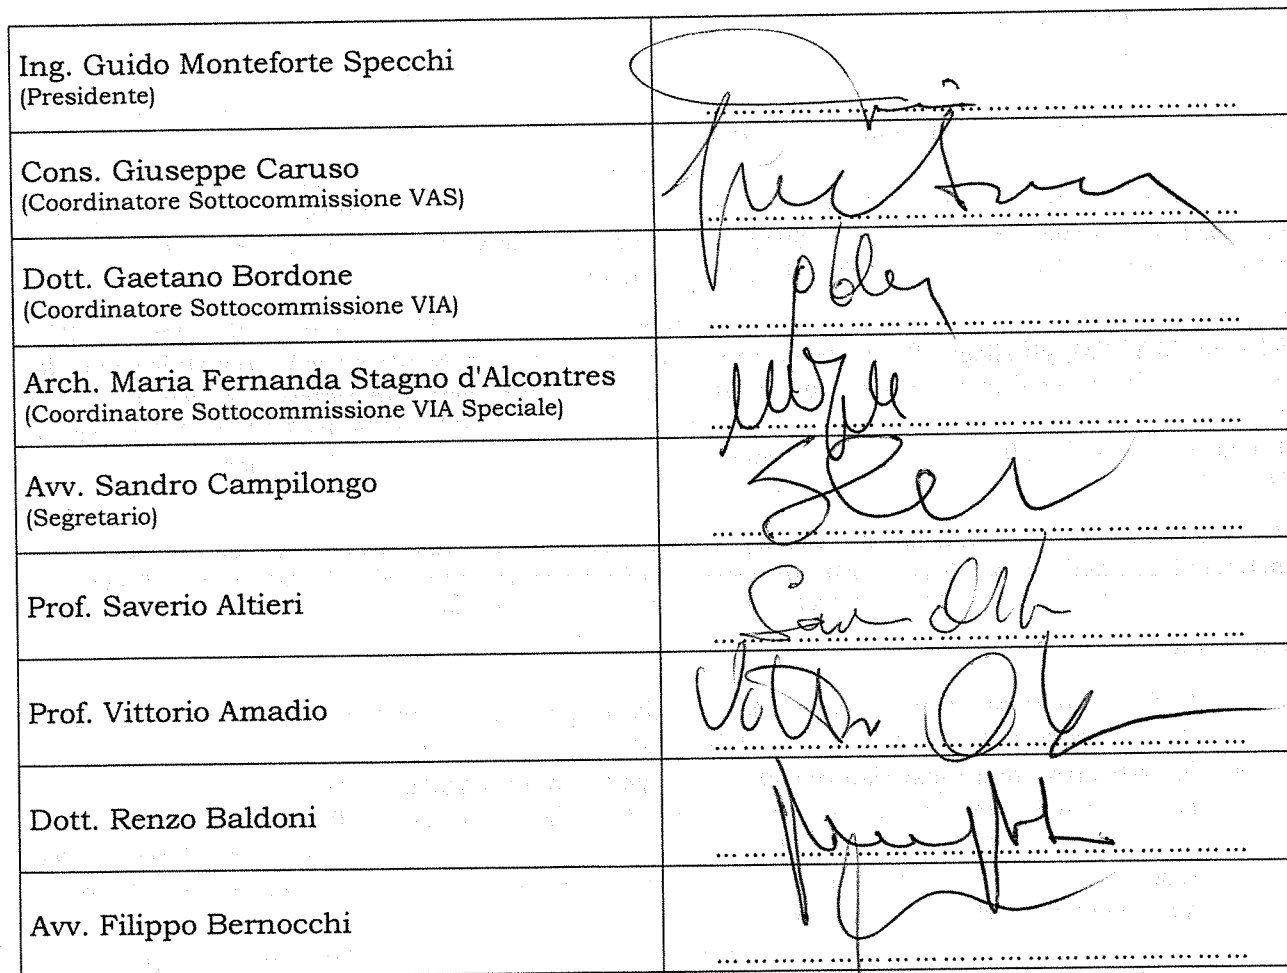 Ing. Guido Monteforte Specchi
(Presidente)
Cons. Giuseppe Caruso
(Coordinatore Sottocommissione VAS)
Dott. Gaetano Bordone
(Coordinatore Sottocommissione VIA)
Arch. Maria Fernanda Stagno d'Alcontres
(Coordinatore Sottocommissione VIA Speciale)
Avv. Sandro Campilongo
(Segretario)
Prof. Saverio Altieri
Prof. Vittorio Amadio
Dott. Renzo Baldoni
Avv. Filippo Bernocchi